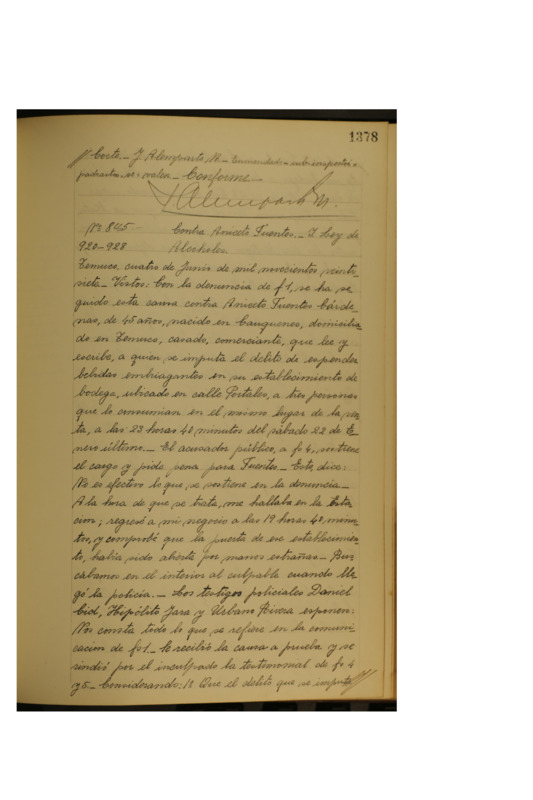 1378
Corte.- J. Alemparte M.- Enmendado - sub.
padrastro.- vale.- Conforme.-
J Alemparte M.
Nº 845 Contra Aniceto Fuentes.- I. Ley de
920-928 Alcoholes.
Temuco, cuatro de Junio de mil novecientos veinti
siete.- Vistos: Con la denuncia de f1, se ha se
guido esta causa contra Aniceto Fuentes Cárde
nas, de 45 años, nacido en Cauquenes, domicilia
do en Temuco, casado, comerciante, que lee y
escribe, a quien se imputa el delito de expender
bebidas embriagantes en su establecimiento de
bodega, ubicado en calle Portales, a tres personas
que lo consumian en el mismo lugar de la ven
ta, a las 23 horas 40 minutos del sábado 22 de E
nero último.- El acusador público, a fs 4, sostiene
el cargo y pide pena para Fuentes.- Este, dice:
No es efectivo lo que se sostiene en la denuncia.-
A la hora de que se trata, me hallaba en la Esta
cion; regresé a mi negocio a las 19 horas 40 minu
tos, y comprobé que la puerta de ese establecimien
to, habia sido abierta por manos estrañas.- Bus
cabamos en el interior al culpable cuando lle
gó la policia.- Los testigos policiales Daniel
Cid, Hipólito Jara y Urbano Rivera esponen:
Nos consta todo lo que se refiere en la comuni
cacion de fs1.- Se recibió la causa a prueba y se
rindió por el inculpado la testimonial de fs 4
y5.- Considerando: 1º Que el delito que se imputa